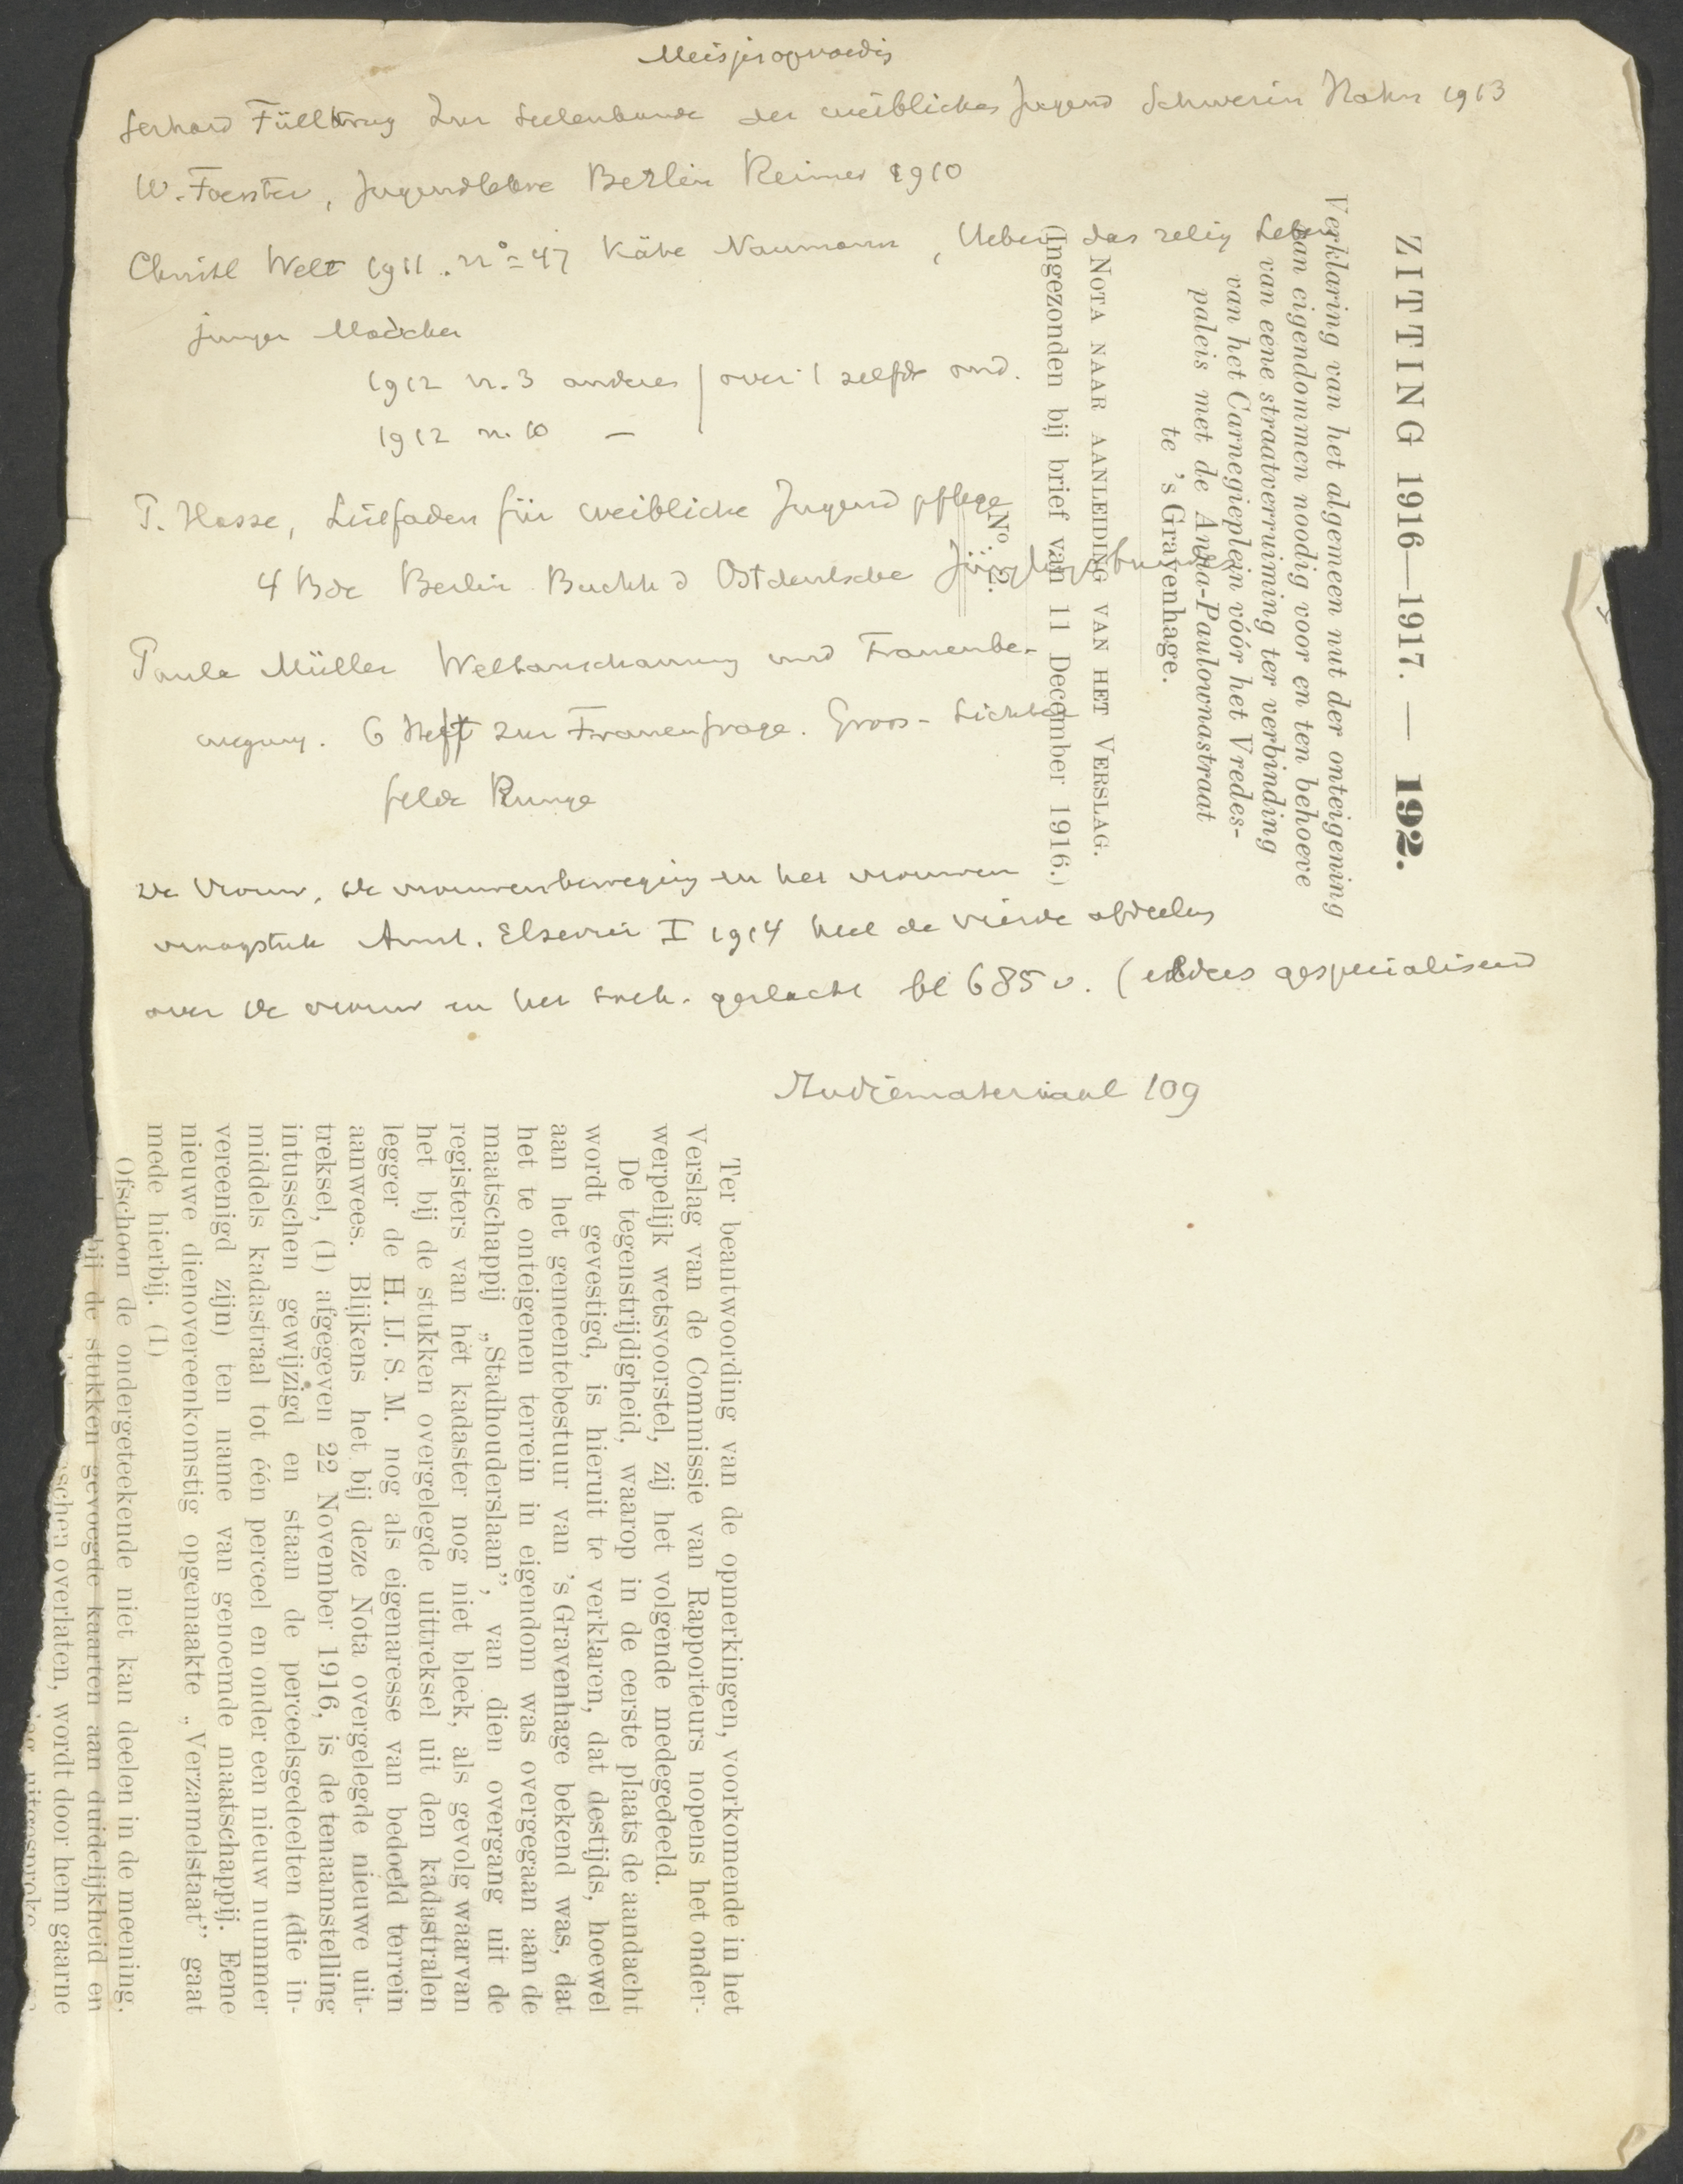 Meisjesopvoedig
Gerhard Füllkrug Zur Seelenkunde der weibliches Jugend Schwerin Hahn 1913
W. Foerster, Jugendlehre Berlin Reimer 1910
Christl Welt 1911. no 47 Käthe Naumann, Ueber das relig Leben
junger Mädchen
1912 n. 3 anderes | over 't zelfde ond.
1912 n. 10 —
P. Hasse, Leitfaden für weibliche Jugendpflege
4 Bde Berlin Buchh d Ostdeutsche Jünglingsbundes
Paula Müller Weltanschauung und Frauenbe-
wegung. 6 Heft zur Frauenfrage. Gross-Lichter
felde Runge
De vrouw, de vrouwenbeweging en het vrouwen
vraagstuk Amst. Elsevier I 1914 heel de vierde afdeeling
over de vrouw en het geslacht bl 685 v. (gespecialiseerd
Studiemateriaal 109
ZITTING 1916—1917. — 192.
Verklaring van het algemeen nut der onteigening
van eigendommen noodig voor en ten behoeve
van eene straatverruiming ter verbinding
van het Carnegieplein vóór het Vredes-
paleis met de Anna-Paulownastraat
te 's Gravenhage.
NOTA NAAR AANLEIDING VAN HET VERSLAG.
(Ingezonden bij brief van 11 December 1916.)
No.
Ter beantwoording van de opmerkingen, voorkomende in het
Verslag van de Commissie van Rapporteurs nopens het onder-
werpelijk wetsvoorstel, zij het volgende medegedeeld.
De tegenstrijdigheid, waarop in de eerste plaats de aandacht
wordt gevestigd, is hieruit te verklaren, dat destijds, hoewel
aan het gemeentebestuur van 's Gravenhage bekend was, dat
het te onteigenen terrein in eigendom was overgegaan aan de
maatschappij „Stadhouderslaan”, van dien overgang uit de
registers van het kadaster nog niet bleek, als gevolg waarvan
het bij de stukken overgelegde uittreksel uit den kadastralen
legger de H. IJ. S. M. nog als eigenaresse van bedoeld terrein
aanwees. Blijkens het bij deze Nota overgelegde nieuwe uit-
treksel, (1) afgegeven 22 November 1916, is de tenaamstelling
intusschen gewijzigd en staan de perceelsgedeelten (die in-
middels kadastraal tot één perceel en onder een nieuw nummer
vereenigd zijn) ten name van genoemde maatschappij. Eene
nieuwe dienovereenkomstig opgemaakte „Verzamelstaat” gaat
mede hierbij. (1)
Ofschoon de ondergeteekende niet kan deelen in de meening,
bij de stukken gevoegde kaarten aan duidelijkheid en
schen overlaten, wordt door hem gaarne